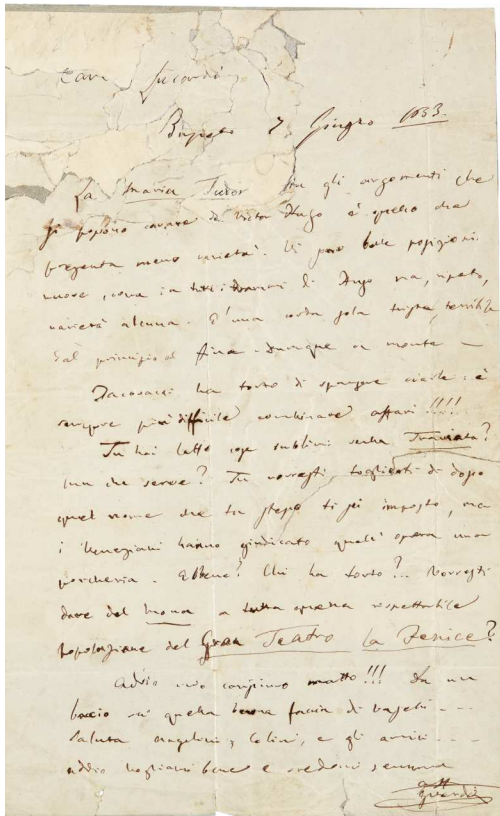 Caro
Busseto 7 Giugno 1853.
La Maria Tudor fra gli argomenti che
si possono cavare da Victor Hugo è quello che
presenta meno varietà. Vi sono belle posizioni
nuove, come in tutti i drammi di Hugo ma, ripeto,
varietà alcuna. È una corda sola trista, terribile
dal principio al fine. Dunque a monte –
Jacovacci ha torto di è
sempre più difficile combinare affari!!!!
Tu hai letto cose sublimi sulla Traviata?
ma che serve? Tu vorresti toglierti di dosso
quel nome che tu stesso ti sei imposto, ma
i Veneziani hanno giudicato quell'opera una
porcheria. Ebbene? Chi ha torto?.. Vorresti
dare del mona a tutta questa rispettabile
popolazione del Gran Teatro la Fenice?
Addio mio carissimo matto!!! Da un
bacio su quella buona faccia di
Saluta e gli amici ...
addio vogliami bene e credemi sempre
aff
GVerdi